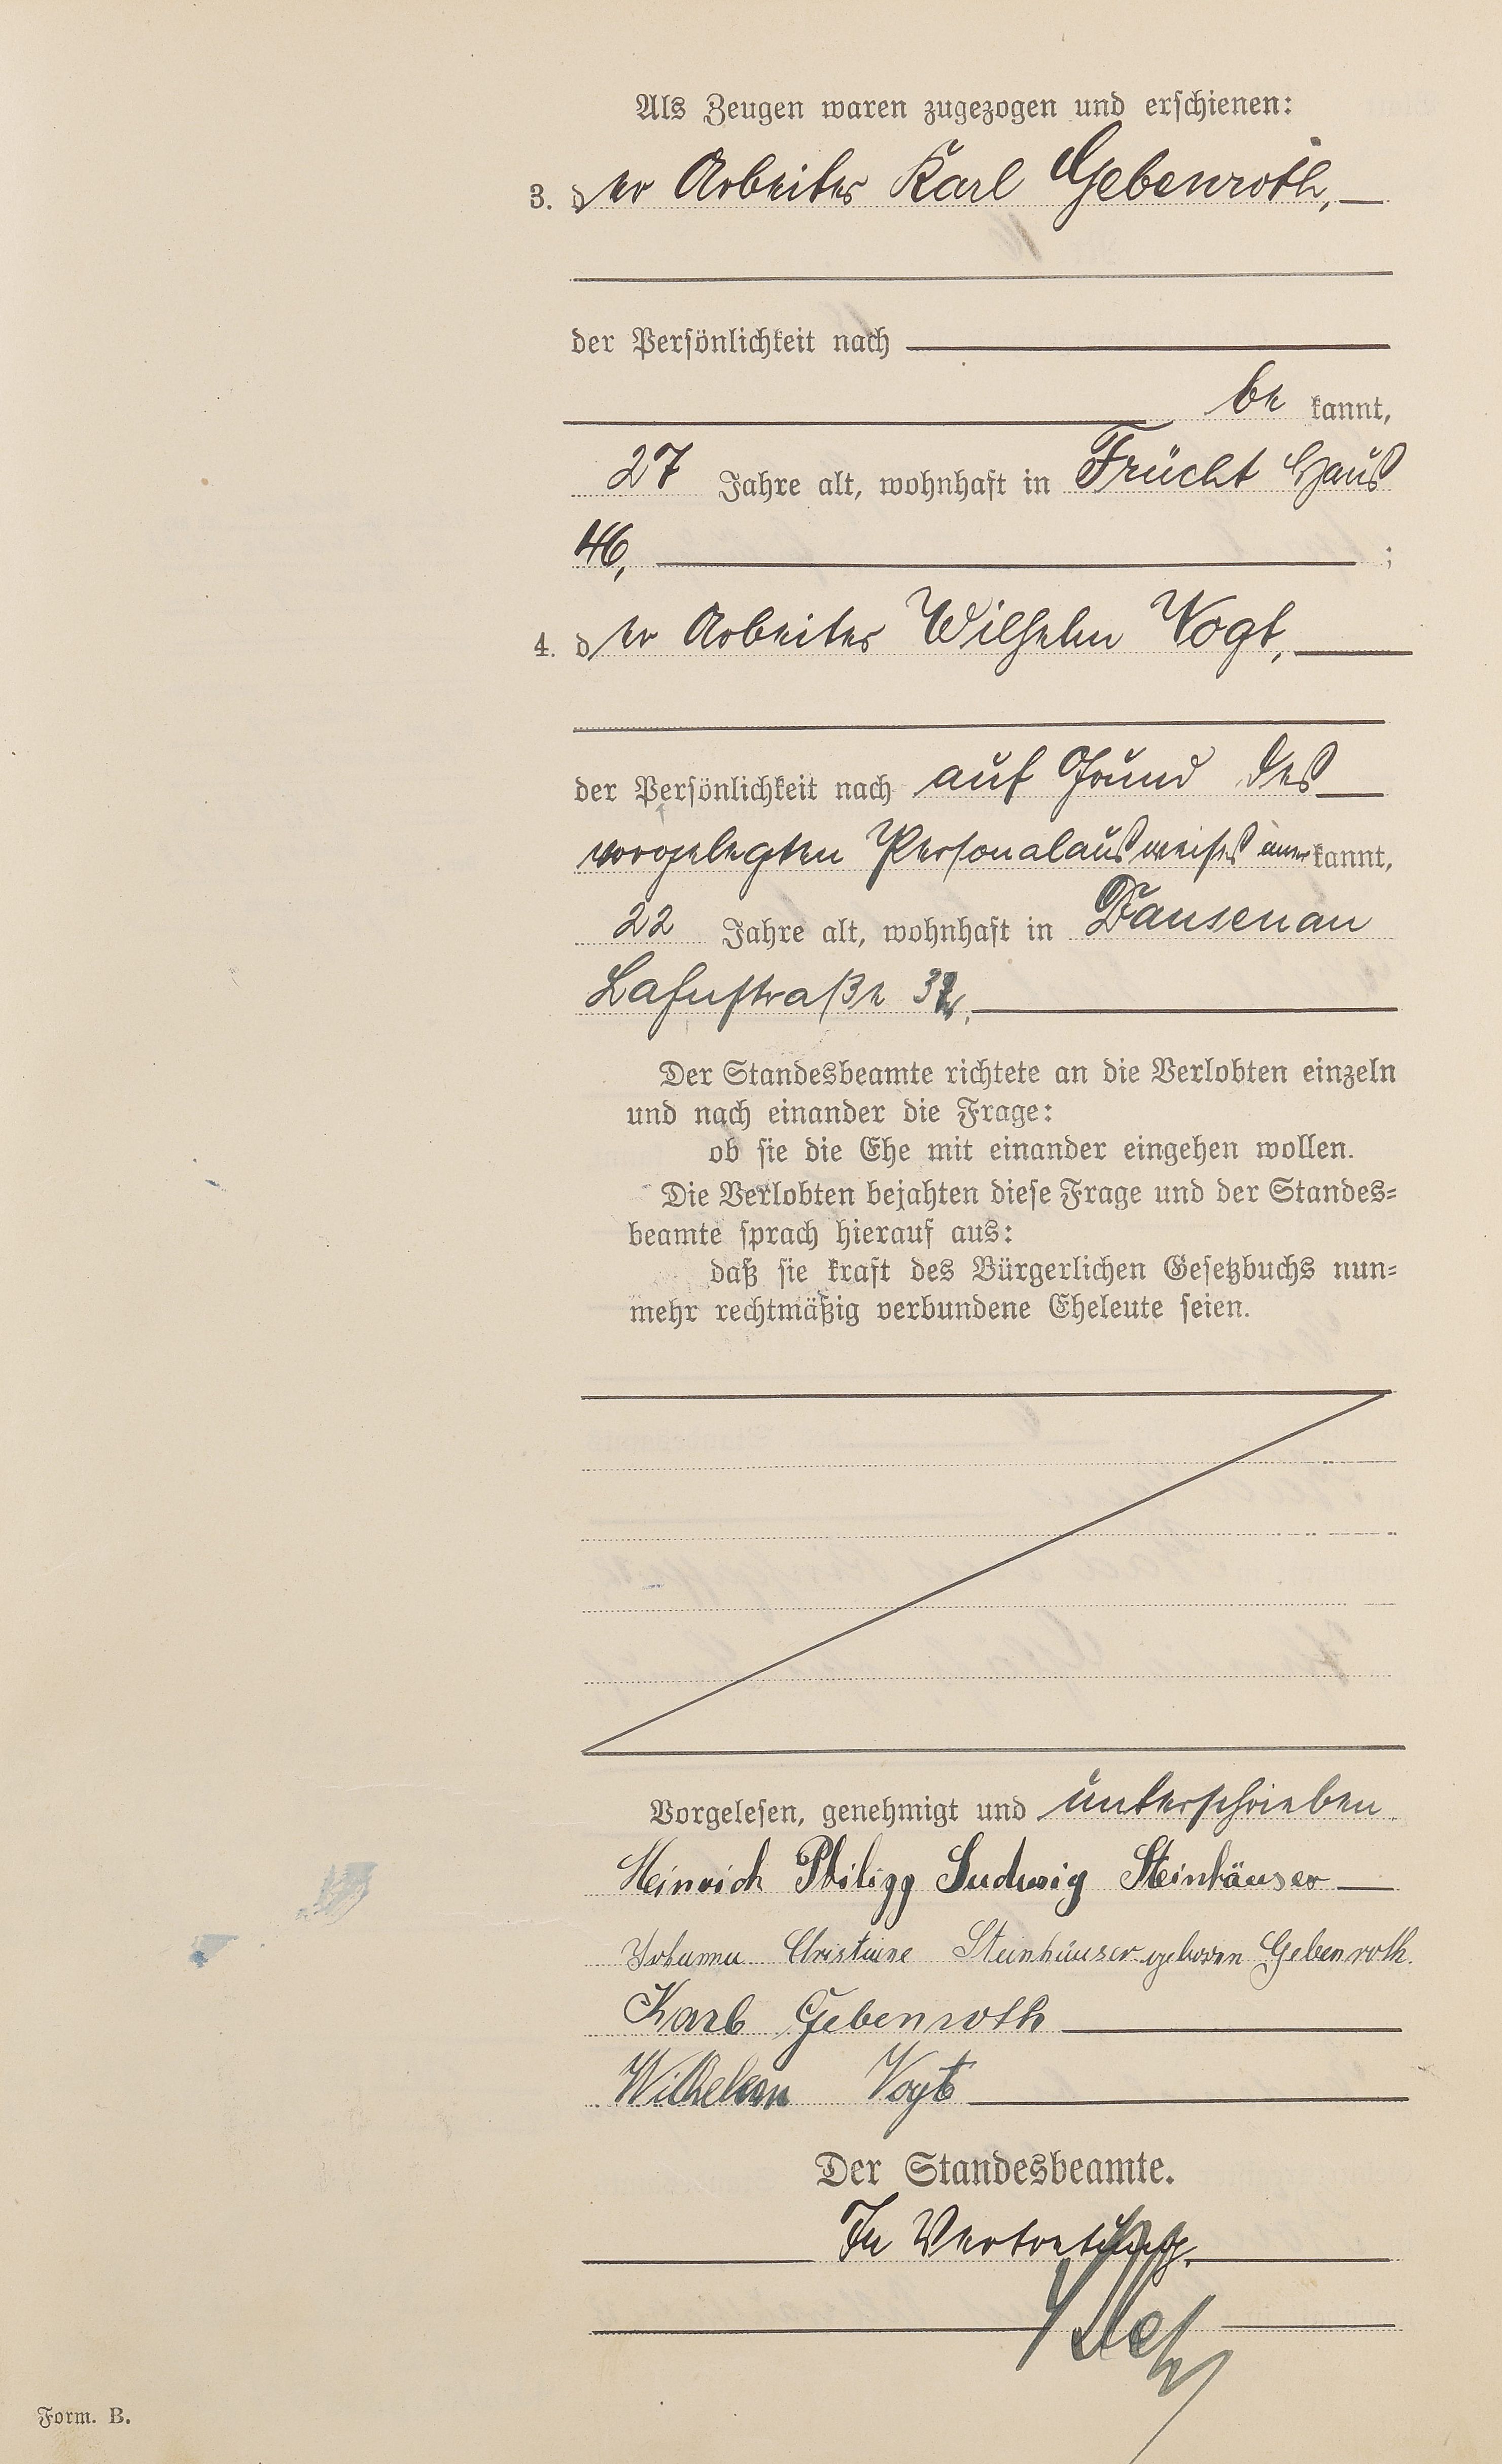 Als Zeugen waren zugezogen und erschienen:
3. der Arbeiter Karl Gebenroth,
der Persönlichkeit nach
be kannt,
27 Jahre alt, wohnhaft in Frücht Haus
46, ;
4. der Arbeiter Wilhelm Vogt,
der Persönlichkeit nach auf Grund des
vorgelegten Personalausweises anerkannt,
22 Jahre alt, wohnhaft in Dausenau
Lahnstraße
Der Standesbeamte richtete an die Verlobten einzeln
und nach einander die Frage:
ob sie die Ehe mit einander eingehen wollen.
Die Verlobten bejahten diese Frage und der Standes=
beamte sprach hierauf aus:
daß sie kraft des Bürgerlichen Gesetzbuchs nun=
mehr rechtmäßig verbundene Eheleute seien.
Vorgelesen, genehmigt und unterschrieben
Heinrich Philipp Ludwig Steinhäuser
Johanna Christiane Steinhäuser geboren Gebenroth.
Karl Gebenroth
Wilhelm Vogt
Der Standesbeamte.
In Vertretung.
Form. B.